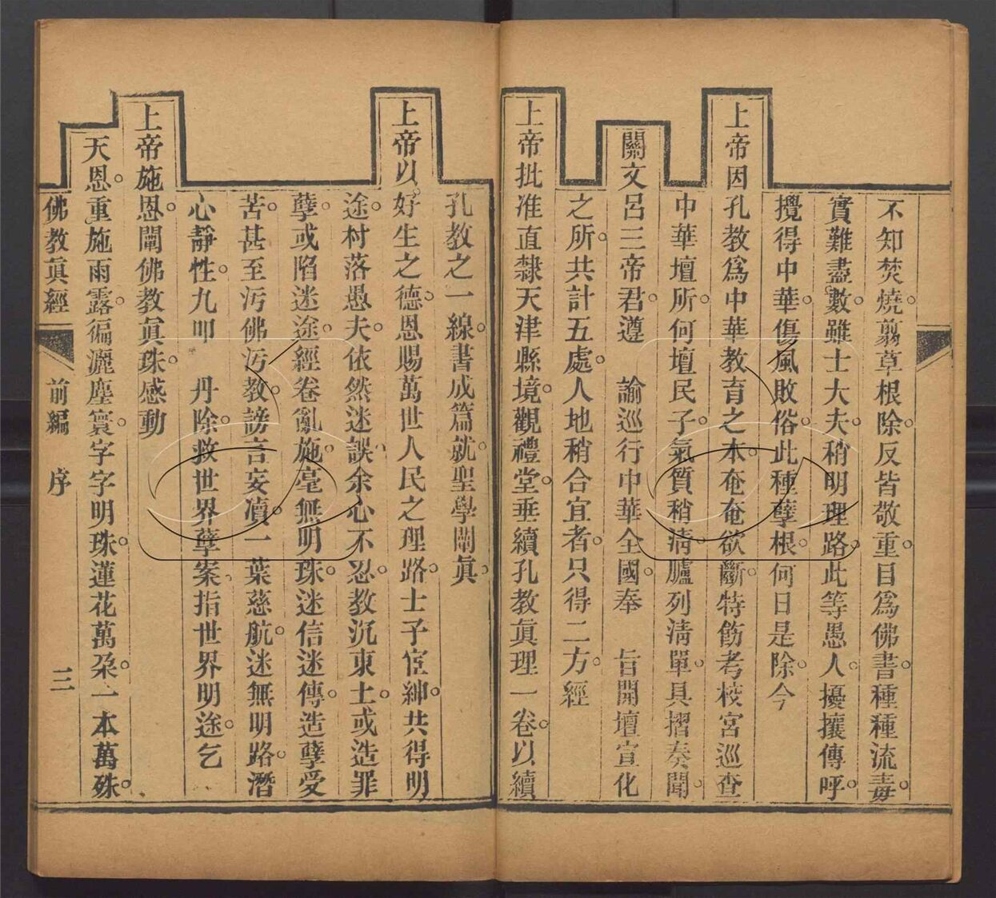 不知焚燒翦草根除反皆敬重目爲佛書種種流毒
實難盡數雖士大夫稍明理路此等愚人擾攘傳呼
攪得中華傷風敗俗此種孽根何日是除今
上帝因孔教爲中華教育之本奄奄欲斷特飭考校宮巡查
中華壇所何壇民子氣質稍淸臚列淸單具摺奏聞
關文呂三帝君遵　諭巡行中華全國奉　旨開壇宣化
之所共計五處人地稍合宜者只得二方經
上帝批准直隸天津縣境觀禮堂垂續孔教眞理一卷以續
孔教之一線書成篇就聖學闡眞
上帝以好生之德恩賜萬世人民之理路士子宦紳共得明
途村落愚夫依然迷誤余心不忍教沉東土或造罪
孽或陷迷途經卷亂施毫無明珠迷信迷傳造孽受
苦甚至污佛污教謗言妄瀆一葉慈航迷無明路潛
心靜性九叩　丹除救世界孽案指世界明途乞
上帝施恩闡佛教眞珠感動
天恩重施雨露徧灑塵寰字字明珠蓮花萬朶一本萬殊
佛教眞經　前編　序　三